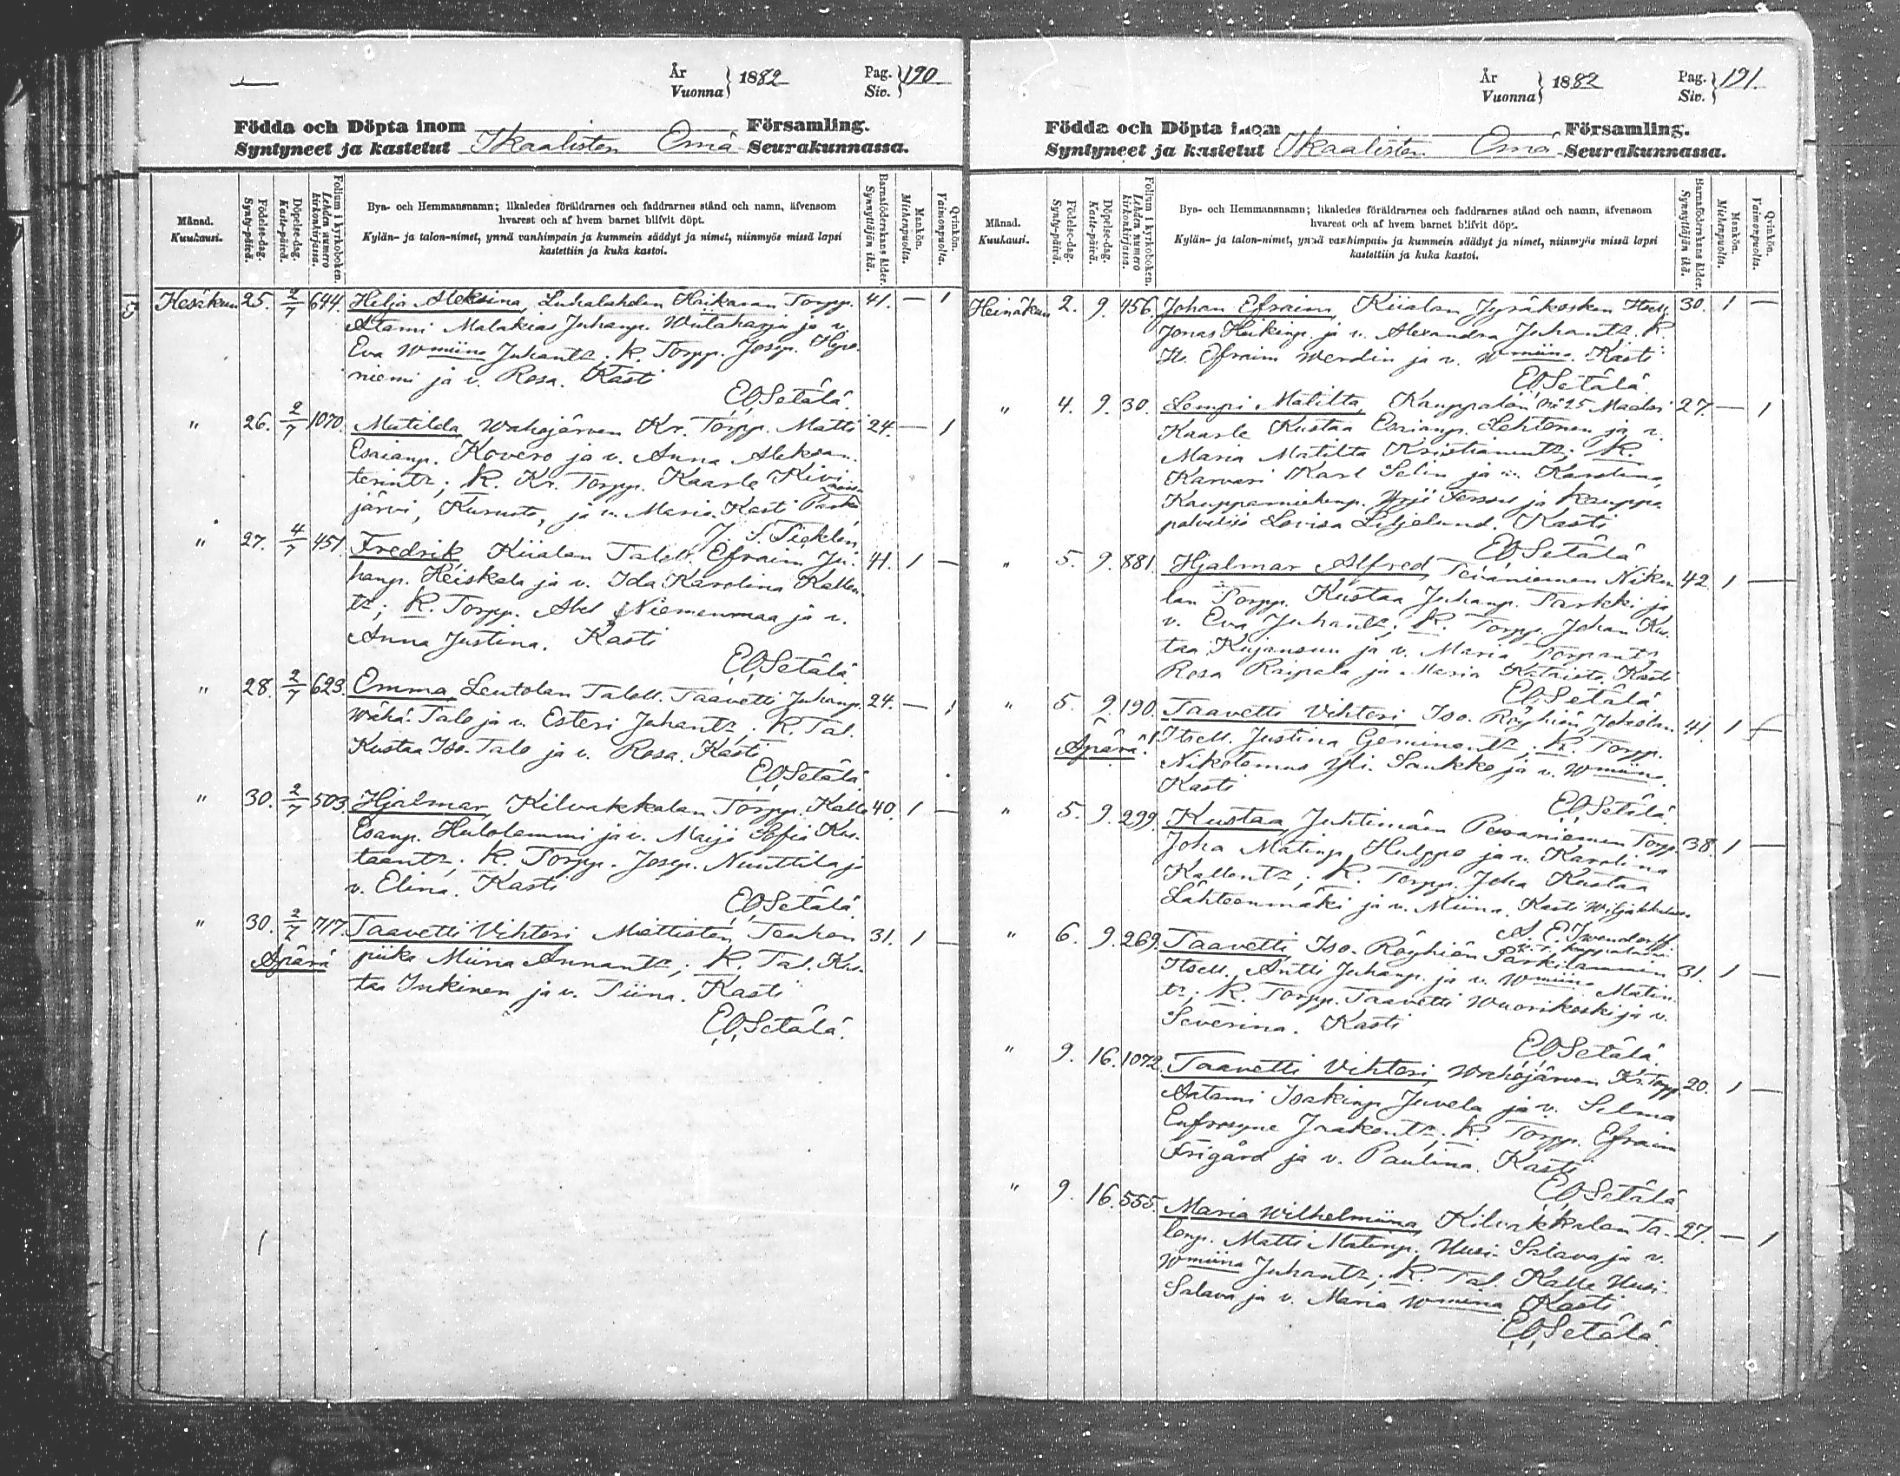 År
Vuonna } 1882
Pag.
Siv. } 190
Födda och Döpta inom
Syntyneet ja kastetut Ikaalisten Emä Församling.
Seurakunnassa.
Månad.
Kuukausi.
Födelse-dag.
Synty-päivä.
Döpelse-dag.
Kaste-päivä.
Folium i kyrkoboken.
Lehden numero kirkonkirjassa.
Bya- och Hemmansnamn; likaledes föräldrarnes och faddrarnes stånd och namn, äfvensom
hvarest och af hvem barnet blifvit döpt.
Kylän- ja talon-nimet, ynnä vanhimpain ja kummein säädyt ja nimet, niinmyös missä lapsi
kastettiin ja kuka kastoi.
Barnaföderskans ålder.
Synnyttäjän ikä.
Mankön.
Miehenpuolta.
Qvinkön.
Vaimonpuolta.
Kesäkuu 25. 2/7 644. Hilja Aleksina, Luhalahden Haikaran Torpp. 41. — 1
Atami Malakias Juhanp. Wiitaharja ja v.
Eva Wmiina Juhantr; K. Torpp. Josep.
niemi ja v. Rosa. Kasti
EO Setälä.
" 26. 2/7 1070. Matilda, Wahojärven Kr. Torpp. Matti 24. — 1
Esaianp. Kovero ja v. Anna Aleksan-
terintr; K. Kr. Torpp. Kaarle Kivi-
järvi, Kurusta, ja v. Maria. Kasti
" 27. 4/7 451. Fredrik, Kiialan Talell. Efraim Ju- 41. 1 —
hanp. Heiskala ja v. Ida Karolina Kallen-
tr; K. Torpp. Abel Niemenmaa ja v.
Anna Justina. Kasti
EO Setälä.
" 28. 2/7 623. Emma, Leutolan Talell. Taavetti Juhanp. 24. — 1
Wähä-Talo ja v. Esteri Juhantr; K. Tal.
Kustaa Iso-Talo ja v. Rosa. Kasti
EO Setälä.
" 30. 2/7 503. Hjalmar, Kilvakkalan Torpp. Kalle 40. 1 —
Esanp. Hulolammi ja v. Maija Sofia Kus-
taantr; K. Torpp. Josep. Nuuttila ja
v. Elina. Kasti
EO Setälä.
" 30. 2/7 717. Taavetti Vihteri Mettisten Teuhon 31. 1 —
Äpärä piika Miina Annantr; K. Tal. Kus-
taa Inkinen ja v. Tiina. Kasti
EO Setälä.
År
Vuonna } 1882
Pag.
Siv. } 191.
Födda och Döpta inom
Syntyneet ja kastetut Ikaalisten Emä Församling.
Seurakunnassa.
Månad.
Kuukausi.
Födelse-dag.
Synty-päivä.
Döpelse-dag.
Kaste-päivä.
Folium i kyrkoboken.
Lehden numero kirkonkirjassa.
Bya- och Hemmansnamn; likaledes föräldrarnes och faddrarnes stånd och namn, äfvensom
hvarest och af hvem barnet blifvit döpt.
Kylän- ja talon-nimet, ynnä vanhimpain ja kummein säädyt ja nimet, niinmyös missä lapsi
kastettiin ja kuka kastoi.
Barnaföderskans ålder.
Synnyttäjän ikä.
Mankön.
Miehenpuolta.
Qvinkön.
Vaimonpuolta.
Heinäkuu 2. 9. 456. Johan Efraim, Kiialan Jyräkosken Itsell. 30. 1 —
Jonas Heikinp. ja v. Alexandra Juhantr; K.
It. Efraim Werdin ja v. Wmiina. Kasti
EO Setälä.
" 4. 9. 30. Lempi Matilta, Kauppalan No 25 Maalari 27. — 1
Kaarle Kustaa Esaianp. Lehtonen ja v.
Maria Matilta Kristiaanintr; K.
Karvari Karl Selin ja v. Karolina,
Kauppamiehenp. Yrjö ja Kauppa-
palvelija Lovisa Liljelund. Kasti
EO Setälä
" 5. 9. 881. Hjalmar Alfred, Teiäniemen Niku- 42. 1 —
lan Torpp. Kustaa Juhanp. Tarkki ja
v. Eva Juhantr; K. Torpp. Johan Kus-
taa Kujansuu ja v. Maria, Torpantr.
Rosa Raipala ja Maria Kataisto. Kasti
EO Setälä.
" 5. 9. 190. Taavetti Vihteri, Iso-Röyhiön Juholan 41. 1 —
Äpärä! Itsell. Justina Geminantr; K. Torpp.
Nikotemus Yli-Saukko ja v. Wmiina.
Kasti
EO Setälä.
" 5. 9. 299. Kustaa, Juhtimäen Pesäniemen Torpp. 38. 1 —
Joha Matinp. Hulppo ja v. Karolina
Kallentr; K. Torpp. Joha Kustaa
Lähteenmäki ja v. Miina. Kasti Wiljakkalassa
" 6. 9. 269. Taavetti, Iso-Röyhiön Särkilammin 31. 1 —
Itsell. Antti Juhanp. ja v. Wmiina Matin-
tr; K. Torpp. Taavetti Wuorikoski ja v.
Severina. Kasti
EO Setälä.
" 9. 16. 1072. Taavetti Vihteri, Wahojärven Kr. Torpp. 20. 1 —
Antami Isakinp. Juvela ja v. Selma
Eufrosyne Jaakontr; K. Torpp. Efraim
Frigård ja v. Paulina. Kasti
EO Setälä
" 9. 16. 555. Maria Wilhelmiina, Kilvakkalan Ta- 27. — 1
lonp. Matti Matinp. Uusi-Salava ja v.
Wmiina Juhantr; K. Tal. Kalle Uusi-
Salava ja v. Maria Wmiina. Kasti
EO Setälä.